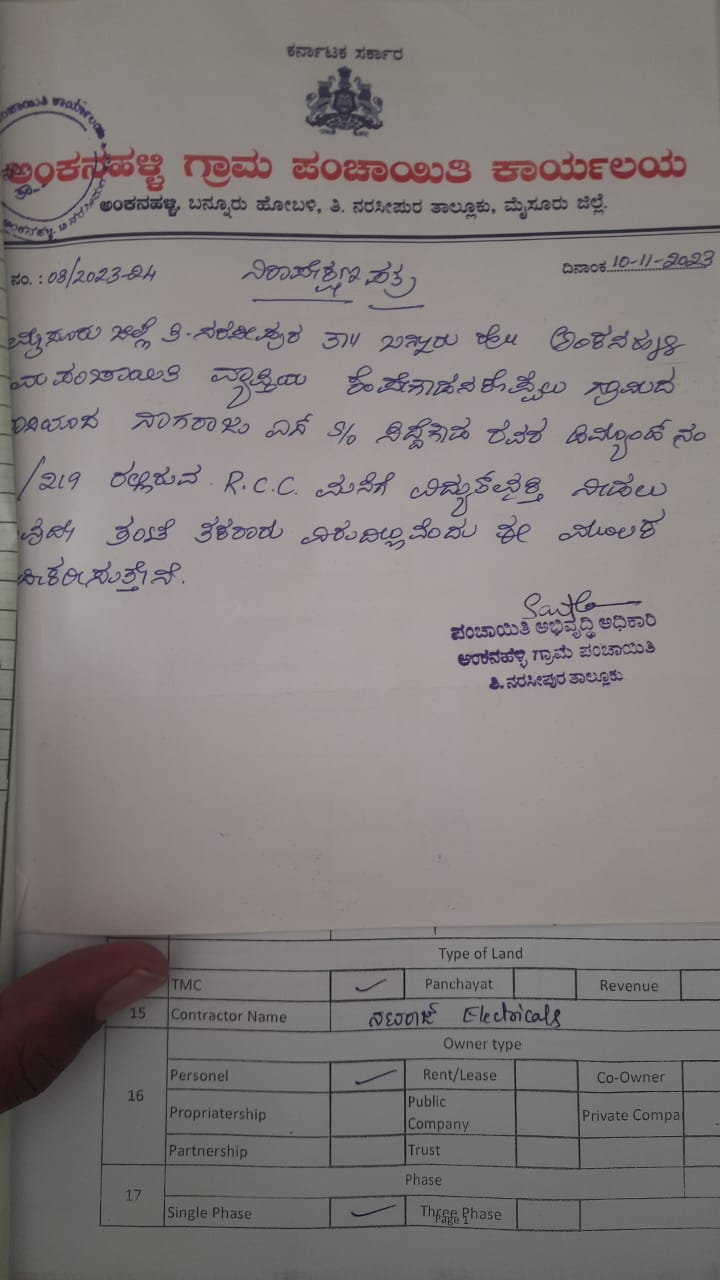 ಕರ್ನಾಟಕ ಸರ್ಕಾರ
ಅಂಕನಹಳ್ಳಿ ಗ್ರಾಮ ಪಂಚಾಯಿತಿ ಕಾರ್ಯಲಯ
ಅಂಕನಹಳ್ಳಿ, ಬನ್ನೂರು ಹೋಬಳಿ, ತಿ. ನರಸೀಪುರ ತಾಲ್ಲೂಕು, ಮೈಸೂರು ಜಿಲ್ಲೆ.
ನಂ. : 08/2023-24 ನಿರಾಪೇಕ್ಷಣ ಪತ್ರ ದಿನಾಂಕ 10-11-2023
ಮೈಸೂರು ಜಿಲ್ಲೆ ತಿ. ನರಸೀಪುರ ತಾ|| ಬನ್ನೂರು ಹೋ|| ಅಂಕನಹಳ್ಳಿ
ಪಂಚಾಯಿತಿ ವ್ಯಾಪ್ತಿಯ ಗ್ರಾಮದ
ನಾಗರಾಜು ಎನ್ S/o ಸಿದ್ದೇಗೌಡ ರವರ ಡಿಮ್ಯಾಂಡ್ ನಂ
/219 ರಲ್ಲಿರುವ R.C.C. ಮನೆಗೆ ವಿದ್ಯುತ್ ನೀಡಲು
ತಂಟೆ ತಕರಾರು ಈ ಮೂಲಕ
ಪಂಚಾಯಿತಿ ಅಭಿವೃದ್ಧಿ ಅಧಿಕಾರಿ
ಅಂಕನಹಳ್ಳಿ ಗ್ರಾಮ ಪಂಚಾಯಿತಿ
ತಿ. ನರಸೀಪುರ ತಾಲ್ಲೂಕು
Type of Land
TMC Panchayat Revenue
15 Contractor Name ನಟರಾಜ್ Electricals
Owner type
16 Personel Rent/Lease Co-Owner
Propriatership Public Company Private Compa
Partnership Trust
17 Phase
Single Phase Three Phase
Page 1